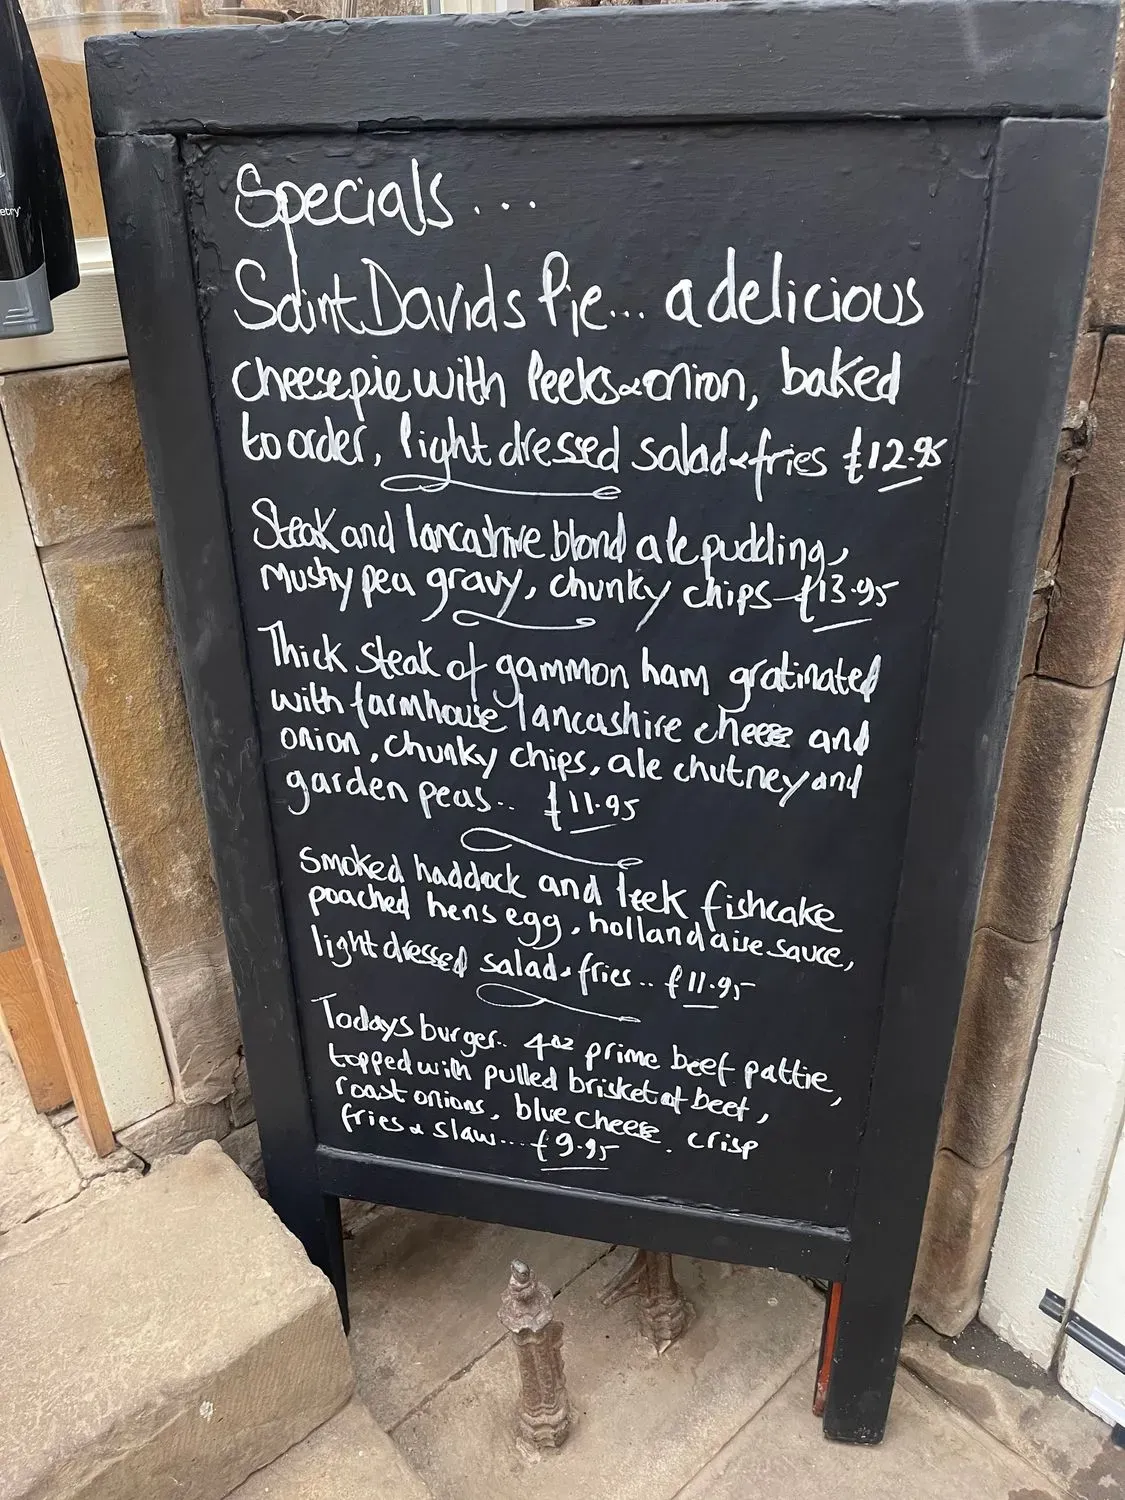 Specials...
Saint Davids Pie... a delicious
cheese pie with leeks & onion, baked
to order, light dressed salad & fries £12.95
Steak and lancashire blond ale pudding,
Mushy pea gravy, chunky chips £13.95
Thick steak of gammon ham gratinated
with farmhouse lancashire cheese and
onion, chunky chips, ale chutney and
garden peas.. £11.95
Smoked haddock and leek fishcake
poached hens egg, hollandaise sauce,
light dressed salad & fries.. £11.95
Todays burger.. 4oz prime beef pattie,
topped with pulled brisket of beef,
roast onions, blue cheese. crisp
fries & slaw... £9.95